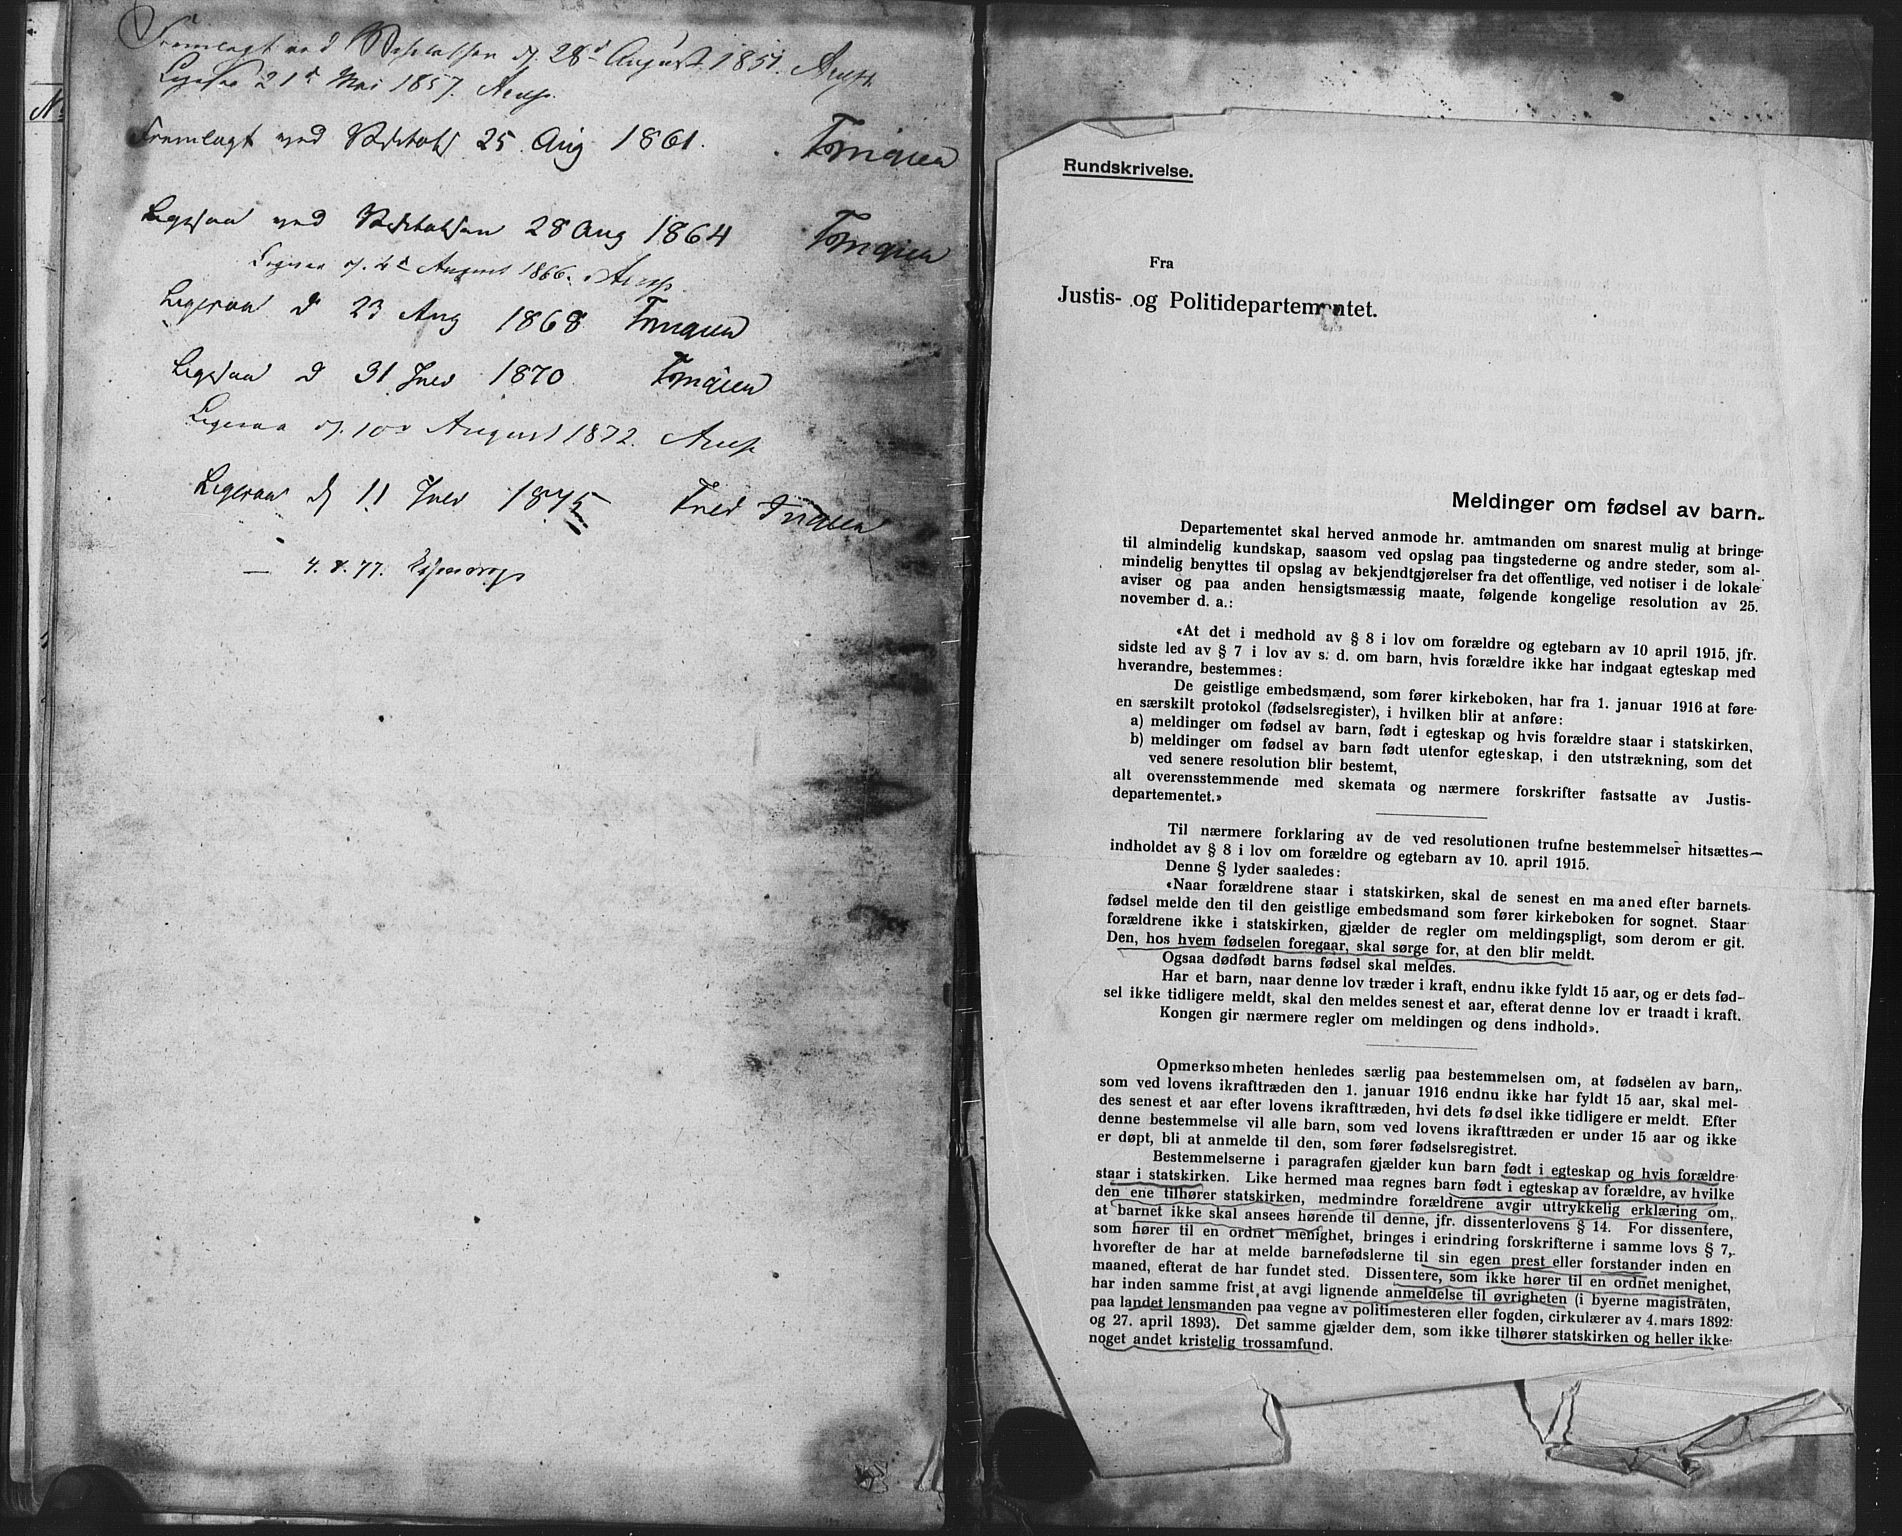 Fremlagt ved Visitatsen d. 28d August 1851. Arup.
Ligesaa 21d Mai 1857. Arup.
Fremlagt ved Visitats 25 Aug 1861.
Ligesaa ved Visitatsen 28 Aug 1864
Ligesaa d. 4d August 1866. Arup.
Ligesaa d 23 Aug 1868
Ligesaa d 31 Juli 1870
Ligesaa d. 10d August 1872. Arup
Ligesaa d 11 Juli 1875
— 4. 8. 77.
Rundskrivelse.
Fra
Justis- og Politidepartementet.
Meldinger om fødsel av barn.
Departementet skal herved anmode hr. amtmanden om snarest mulig at bringe
til almindelig kundskap, saasom ved opslag paa tingstederne og andre steder, som al-
mindelig benyttes til opslag av bekjendtgjørelser fra det offentlige, ved notiser i de lokale
aviser og paa anden hensigtsmæssig maate, følgende kongelige resolution av 25.
november d. a.:
«At det i medhold av § 8 i lov om forældre og egtebarn av 10 april 1915, jfr.
sidste led av § 7 i lov av s. d. om barn, hvis forældre ikke har indgaat egteskap med
hverandre, bestemmes:
De geistlige embedsmænd, som fører kirkeboken, har fra 1. januar 1916 at føre
en særskilt protokol (fødselsregister), i hvilken blir at anføre:
a) meldinger om fødsel av barn, født i egteskap og hvis forældre staar i statskirken,
b) meldinger om fødsel av barn født utenfor egteskap, i den utstrækning, som det
ved senere resolution blir bestemt,
alt overensstemmende med skemata og nærmere forskrifter fastsatte av Justis-
departementet.»
Til nærmere forklaring av de ved resolutionen trufne bestemmelser hitsættes
indholdet av § 8 i lov om forældre og egtebarn av 10. april 1915.
Denne § lyder saaledes:
«Naar forældrene staar i statskirken, skal de senest en maaned efter barnets
fødsel melde den til den geistlige embedsmand som fører kirkeboken for sognet. Staar
forældrene ikke i statskirken, gjælder de regler om meldingspligt, som derom er git.
Den, hos hvem fødselen foregaar, skal sørge for, at den blir meldt.
Ogsaa dødfødt barns fødsel skal meldes.
Har et barn, naar denne lov træder i kraft, endnu ikke fyldt 15 aar, og er dets fød-
sel ikke tidligere meldt, skal den meldes senest et aar, efterat denne lov er traadt i kraft.
Kongen gir nærmere regler om meldingen og dens indhold».
Opmerksomheten henledes særlig paa bestemmelsen om, at fødselen av barn,
som ved lovens ikrafttræden den 1. januar 1916 endnu ikke har fyldt 15 aar, skal mel-
des senest et aar efter lovens ikrafttræden, hvi dets fødsel ikke tidligere er meldt. Efter
denne bestemmelse vil alle barn, som ved lovens ikrafttræden er under 15 aar og ikke
er døpt, bli at anmelde til den, som fører fødselsregistret.
Bestemmelserne i paragrafen gjælder kun barn født i egteskap og hvis forældre
staar i statskirken. Like hermed maa regnes barn født i egteskap av forældre, av hvilke
den ene tilhører statskirken, medmindre forældrene avgir uttrykkelig erklæring om,
at barnet ikke skal ansees hørende til denne, jfr. dissenterlovens § 14. For dissentere,
som hører til en ordnet menighet, bringes i erindring forskrifterne i samme lovs § 7,
hvorefter de har at melde barnefødslerne til sin egen prest eller forstander inden en
maaned, efterat de har fundet sted. Dissentere, som ikke hører til en ordnet menighet,
har inden samme frist at avgi lignende anmeldelse til øvrigheten (i byerne magistraten,
paa landet lensmanden paa vegne av politimesteren eller fogden, cirkulærer av 4. mars 1892
og 27. april 1893). Det samme gjælder dem, som ikke tilhører statskirken og heller ikke
noget andet kristelig trossamfund.